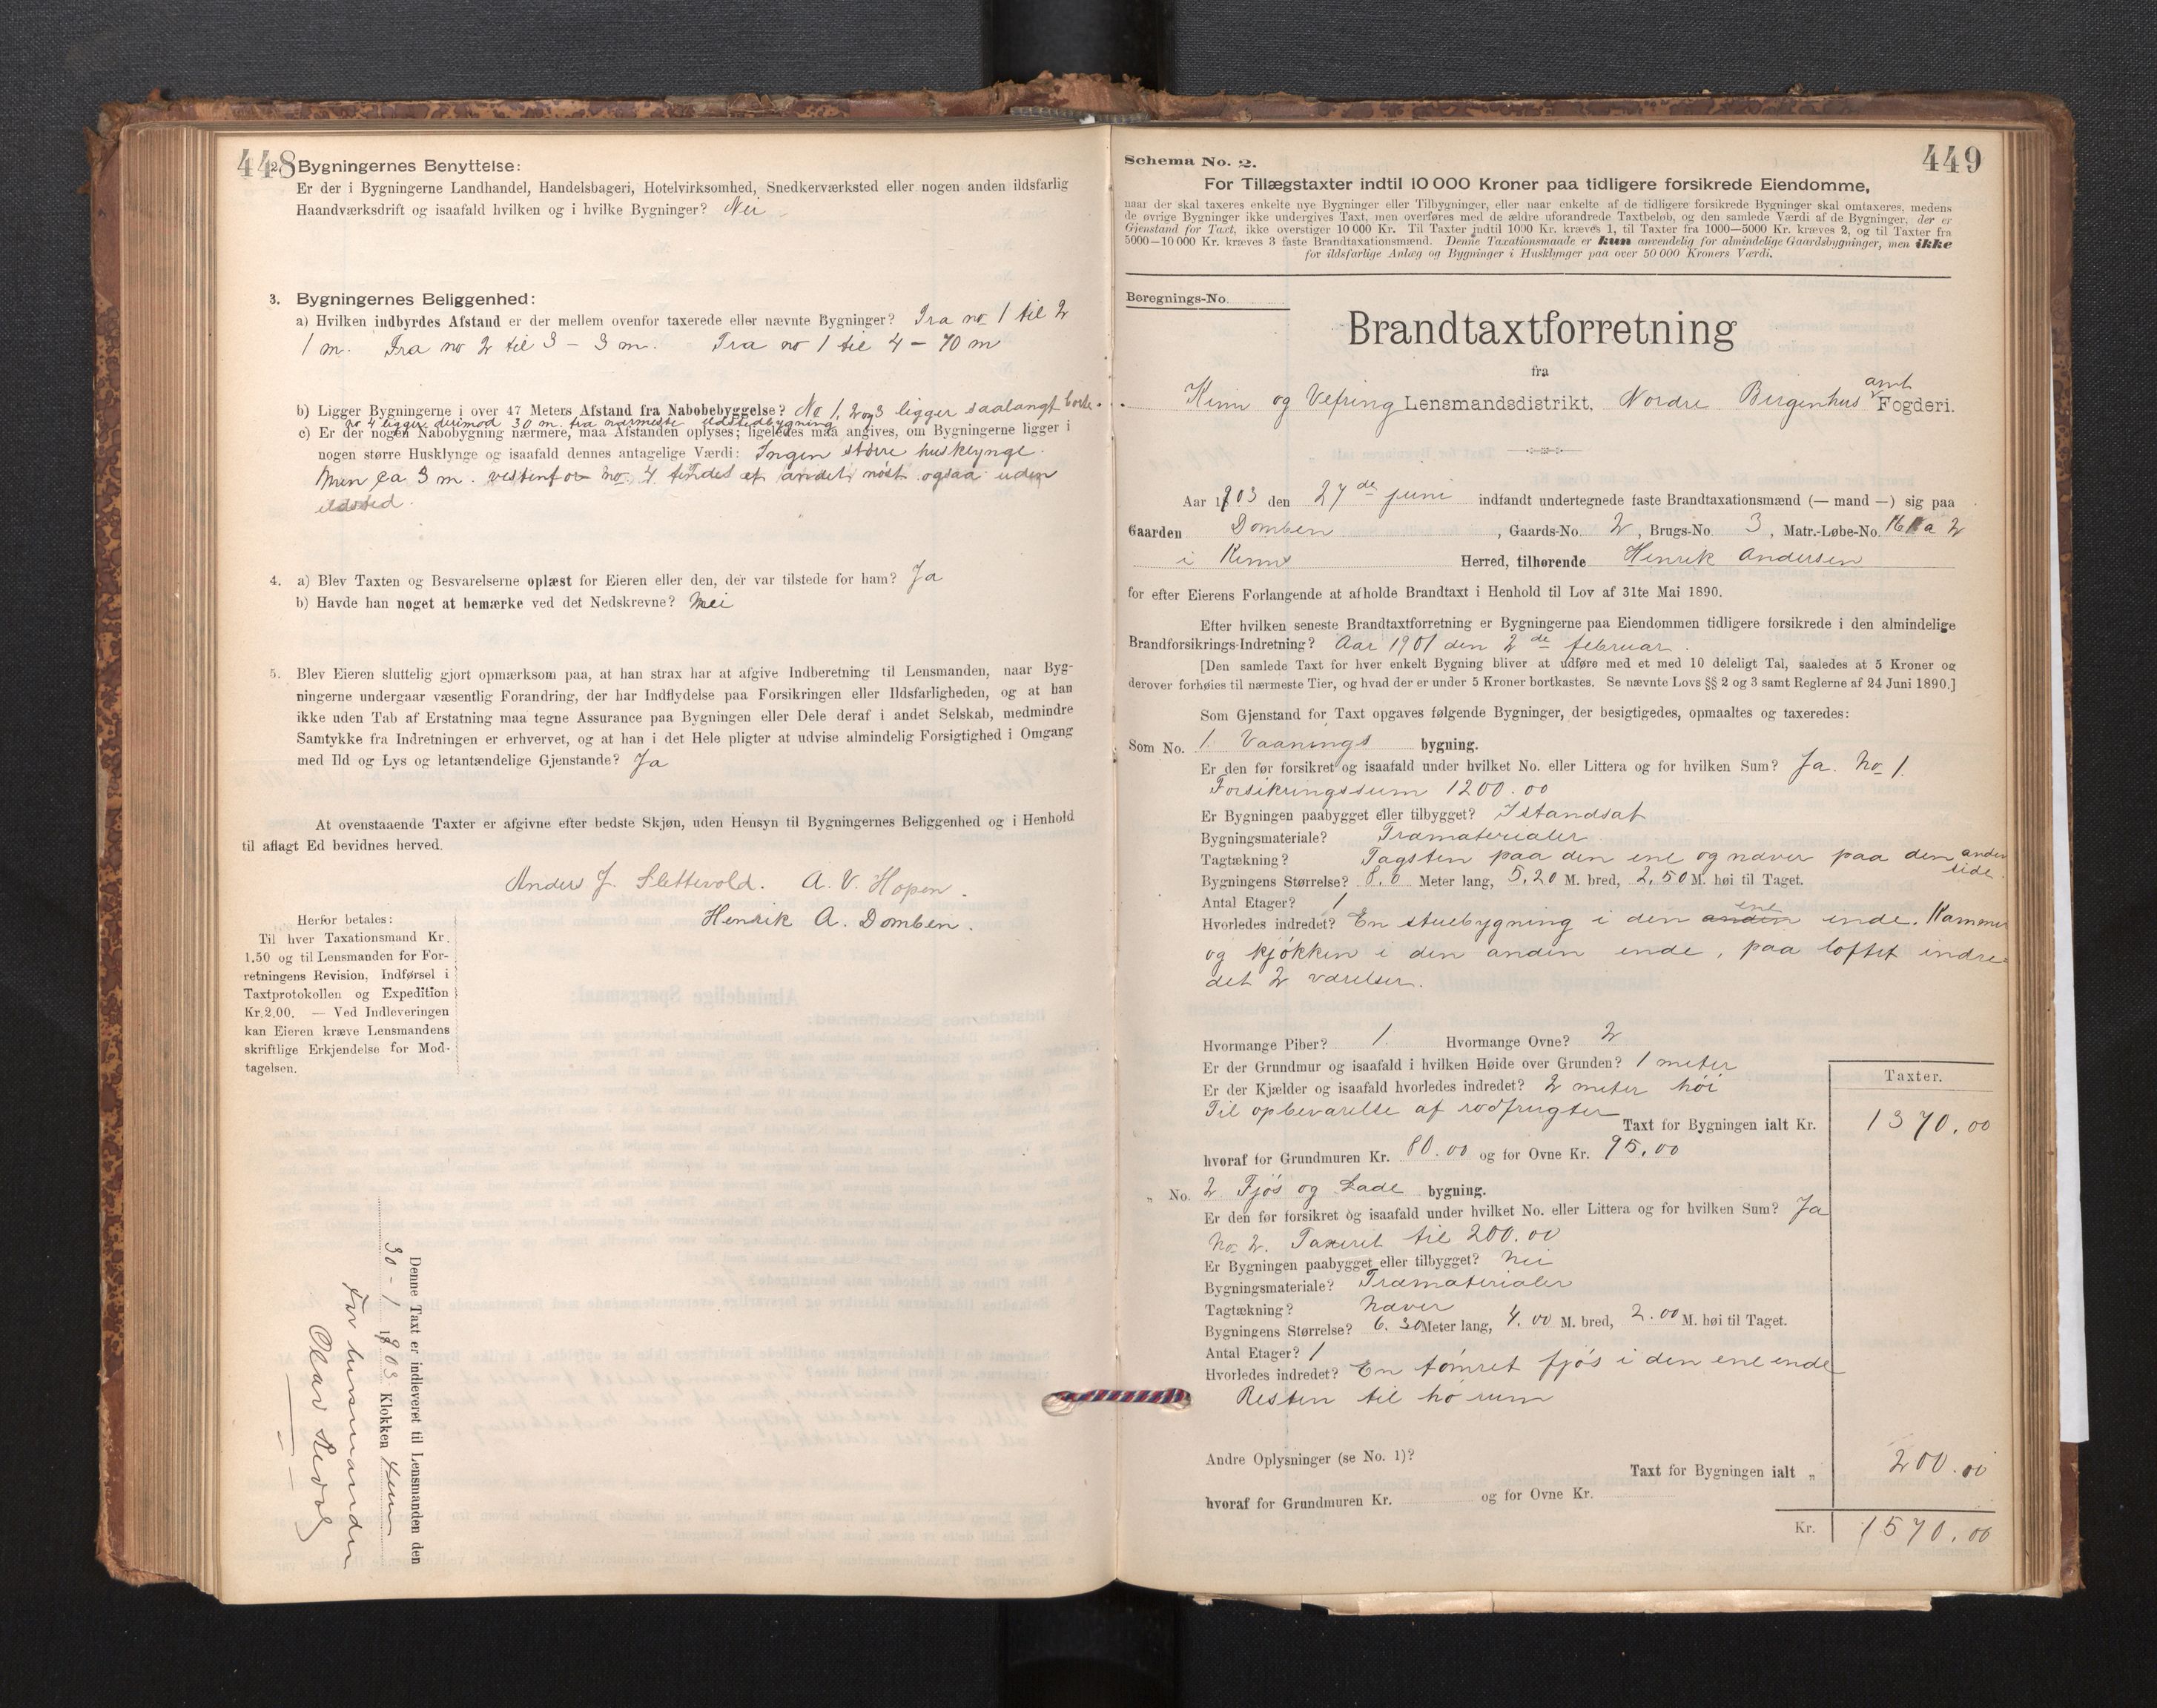 448
2. Bygningernes Benyttelse:
Er der i Bygningerne Landhandel, Handelsbageri, Hotelvirksomhed, Snedkerværksted eller nogen anden ildsfarlig
Haandværksdrift og isaafald hvilken og i hvilke Bygninger? Nei
3. Bygningernes Beliggenhed:
a) Hvilken indbyrdes Afstand er der mellem ovenfor taxerede eller nævnte Bygninger? Fra no 1 til 2
1 m. Fra no 2 til 3 – 3 m. Fra no 1 til 4 – 70 m
b) Ligger Bygningerne i over 47 Meters Afstand fra Nabobebyggelse? No 1, 2 og 3 ligger saalangt borte.
no 4 ligger derimod 30 m. fra nærmeste ildstedbygning
c) Er der nogen Nabobygning nærmere, maa Afstanden oplyses; ligeledes maa angives, om Bygningerne ligger i
nogen større Husklynge og isaafald dennes antagelige Værdi: Ingen større husklynge.
Men ca 3 m. vestenfor no. 4 findes et andet nøst ogsaa uden
ildsted.
4. a) Blev Taxten og Besvarelserne oplæst for Eieren eller den, der var tilstede for ham? Ja
b) Havde han noget at bemærke ved det Nedskrevne? Nei
5. Blev Eieren sluttelig gjort opmærksom paa, at han strax har at afgive Indberetning til Lensmanden, naar Byg-
ningerne undergaar væsentlig Forandring, der har Indflydelse paa Forsikringen eller Ildsfarligheden, og at han
ikke uden Tab af Erstatning maa tegne Assurance paa Bygningen eller Dele deraf i andet Selskab, medmindre
Samtykke fra Indretningen er erhvervet, og at han i det Hele pligter at udvise almindelig Forsigtighed i Omgang
med Ild og Lys og letantændelige Gjenstande? Ja
At ovenstaaende Taxter er afgivne efter bedste Skjøn, uden Hensyn til Bygningernes Beliggenhed og i Henhold
til aflagt Ed bevidnes herved.
Anders J. Slettevold. A. V. Hopen.
Henrik A. Domben.
Herfor betales:
Til hver Taxationsmand Kr.
1.50 og til Lensmanden for For-
retningens Revision, Indførsel i
Taxtprotokollen og Expedition
Kr. 2.00. — Ved Indleveringen
kan Eieren kræve Lensmandens
skriftlige Erkjendelse for Mod-
tagelsen.
Denne Taxt er indleveret til Lensmanden den
30 – 1 1903 Klokken
For lensmanden
Olav
Schema No. 2.
449
For Tillægstaxter indtil 10 000 Kroner paa tidligere forsikrede Eiendomme,
naar der skal taxeres enkelte nye Bygninger eller Tilbygninger, eller naar enkelte af de tidligere forsikrede Bygninger skal omtaxeres, medens
de øvrige Bygninger ikke undergives Taxt, men overføres med de ældre uforandrede Taxtbeløb, og den samlede Værdi af de Bygninger, der er
Gjenstand for Taxt, ikke overstiger 10 000 Kr. Til Taxter indtil 1000 Kr. kræves 1, til Taxter fra 1000—5000 Kr. kræves 2, og til Taxter fra
5000—10 000 Kr. kræves 3 faste Brandtaxationsmænd. Denne Taxationsmaade er kun anvendelig for almindelige Gaardsbygninger, men ikke
for ildsfarlige Anlæg og Bygninger i Husklynger paa over 50 000 Kroners Værdi.
Beregnings-No.
Brandtaxtforretning
fra
Kinn og Vefring Lensmandsdistrikt, Nordre Bergenhus amt Fogderi.
Aar 1903 den 27de juni indfandt undertegnede faste Brandtaxationsmænd (— mand —) sig paa
Gaarden Domben, Gaards-No. 2, Brugs-No. 3, Matr.-Løbe-No. 16 a 2
i Kinn Herred, tilhørende Henrik Andersen
for efter Eierens Forlangende at afholde Brandtaxt i Henhold til Lov af 31te Mai 1890.
Efter hvilken seneste Brandtaxtforretning er Bygningerne paa Eiendommen tidligere forsikrede i den almindelige
Brandforsikrings-Indretning? Aar 1901 den 2de februar.
[Den samlede Taxt for hver enkelt Bygning bliver at udføre med et med 10 deleligt Tal, saaledes at 5 Kroner og
derover forhøies til nærmeste Tier, og hvad der er under 5 Kroner bortkastes. Se nævnte Lovs §§ 2 og 3 samt Reglerne af 24 Juni 1890.]
Som Gjenstand for Taxt opgaves følgende Bygninger, der besigtigedes, opmaaltes og taxeredes:
Som No. 1. Vaanings bygning.
Er den før forsikret og isaafald under hvilket No. eller Littera og for hvilken Sum? Ja. No 1.
Forsikringssum 1200.00
Er Bygningen paabygget eller tilbygget? Istandsat
Bygningsmateriale? Træmaterialer
Tagtækning? Tagsten paa den ene og næver paa den anden side.
Bygningens Størrelse? 8.0 Meter lang, 5,20 M. bred, 2,50 M. høi til Taget.
Antal Etager? 1
Hvorledes indredet? En stuebygning i den anden ene ende. Kammer
og kjøkken i den anden ende, paa loftet indre-
det 2 værelser.
Hvormange Piber? 1. Hvormange Ovne? 2
Er der Grundmur og isaafald i hvilken Høide over Grunden? 1 meter
Er der Kjælder og isaafald hvorledes indredet? 2 meter høi
Til opbevarelse af rodfrugter
Taxter.
Taxt for Bygningen ialt Kr. 1370.00
hvoraf for Grundmuren Kr. 80.00 og for Ovne Kr. 95.00
„ No. 2 Fjøs og Lade bygning.
Er den før forsikret og isaafald under hvilket No. eller Littera og for hvilken Sum? Ja
No 2. Taxeret til 200.00
Er Bygningen paabygget eller tilbygget? Nei
Bygningsmateriale? Træmaterialer
Tagtækning? Næver
Bygningens Størrelse? 6.30 Meter lang, 4.00 M. bred, 2.00 M. høi til Taget.
Antal Etager? 1
Hvorledes indredet? En tømret fjøs i den ene ende
Resten til hø rum
Andre Oplysninger (se No. 1)?
Taxt for Bygningen ialt „ 200.00
hvoraf for Grundmuren Kr. og for Ovne Kr.
Kr. 1570.00